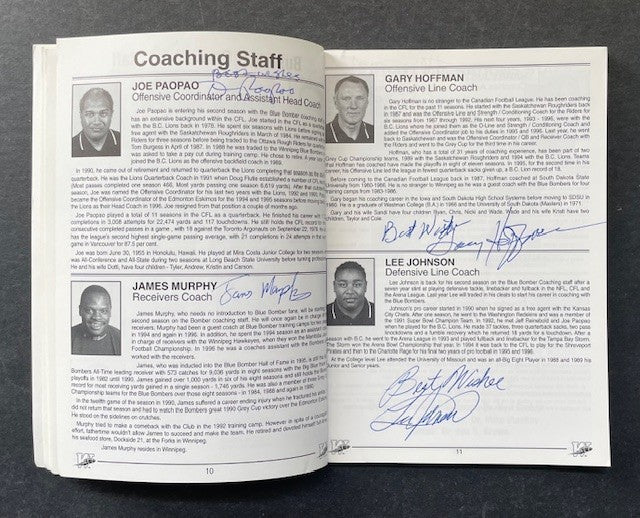 Coaching Staff
Best wishes
JOE PAOPAO
Offensive Coordinator and Assistant Head Coach
Joe Paopao is entering his second season with the Blue Bomber coaching
has an extensive background within the CFL. Joe started in the CFL as a
with the B.C. Lions back in 1978. He spent six seasons with Lions before signing
free agent with the Saskatchewan Roughriders in March of 1984. He remained with
Riders for three seasons before being traded to the Ottawa Rough Riders for quarterback
Tom Burgess in April of 1987. In 1988 he was traded to the Winnipeg Blue Bombers
was asked to take a pay cut during training camp. He chose to retire. A year later
joined the B.C. Lions as the offensive backfield coach in 1989.
In 1990, he came out of retirement and returned to quarterback the Lions completing that season as the
quarterback. He was the Lions Quarterback Coach in 1991 when Doug Flutie established a number of
(Most passes completed one season 466, Most yards passing one season 6,619 yards). After that outstanding
season, Joe was named the Offensive Coordinator for his last two years with the Lions, 1992 and 1993.
became the Offensive Coordinator of the Edmonton Eskimos for the 1994 and 1995 seasons before moving
the Lions as their Head Coach in 1996. Joe resigned from that position a couple of months ago.
Joe Paopao played a total of 11 seasons in the CFL as a quarterback. He finished his career with
completions in 5,008 attempts for 22,474 yards and 117 touchdowns. He still holds the CFL record for
consecutive completed passes in a game, with 18 against the Toronto Argonauts on September 22, 1979. He
has the league's second highest single-game passing average, with 21 completions in 24 attempts in the
game in Vancouver for 87.5 per cent.
Joe was born June 30, 1955 in Honolulu, Hawaii. He played at Mira Costa Junior College for two seasons
was All-Conference and All-State during two seasons at Long Beach State University before turning
He and his wife Dotti, have four children - Tyler, Andrew, Kristin and Carson.
JAMES MURPHY
Receivers Coach
James Murphy
James Murphy, who needs no introduction to Blue Bomber fans, will be
second season on the Bomber coaching staff. He will once again be in charge of
receivers; Murphy had been a guest coach at Blue Bomber training camps for two
in 1994 and again in 1995. In addition, he spent the 1994 season as an assistant
in charge of receivers with the Winnipeg Hawkeyes, when they won the Manitoba
Football Championship. In 1996 he was a coaches assistant with the Bombers
worked with the receivers.
James, who was inducted into the Blue Bomber Hall of Fame in 1995, is still the
Bombers All-Time leading receiver with 573 catches for 9,036 yards in eight seasons with the Big Blue
playoffs in 1982 until 1990. James gained over 1,000 yards in six of his eight seasons and still holds the
record for most receiving yards gained in a single season - 1,746 yards. He was also a member of three
Championship teams for the Blue Bombers over those eight seasons - in 1984, 1988 and again in 1990.
In the twelfth game of the season in 1990, James suffered a career ending injury when he fractured his
did not return that season and had to watch the Bombers great 1990 Grey Cup victory over the Edmonton
He stood on the sidelines on crutches.
Murphy tried to make a comeback with the Club in the 1992 training camp. However in spite of a
effort, fathertime wouldn't allow James to succeed and make the team. He retired and devoted himself
his seafood store, Dockside 21, at the Forks in Winnipeg.
James Murphy resides in Winnipeg.
10
GARY HOFFMAN
Offensive Line Coach
Gary Hoffman is no stranger to the Canadian Football League. He has been coaching
in the CFL for the past 11 seasons. He started with the Saskatchewan Roughriders back in
1987 and was the Offensive Line and Strength / Conditioning Coach for the Riders for
six seasons from 1987 through 1992. His next four years, 1993 - 1996, were with the
B.C. Lions. He joined them as the Offensive Line and Strength / Conditioning Coach and
added the Offensive Coordinator job to his duties in 1995 and 1996. Last year, he went
back to Saskatchewan and was the Offensive Coordinator / OB and Receiver Coach with
the Riders and went to the Grey Cup for the third time in his career.
Hoffman, who has a total of 31 years of coaching experience, has been part of two
Grey Cup Championship teams, 1989 with the Saskatchewan Roughriders and 1994 with the B.C. Lions. Teams
that Hoffman has coached have made the playoffs in eight of eleven seasons. In 1995, for the second time in his
career, his Offensive Line led the league in fewest quarterback sacks given up, a B.C. Lion record of 18.
Before coming to the Canadian Football League back in 1987, Hoffman coached at South Dakota State
University from 1980-1986. He is no stranger to Winnipeg as he was a guest coach with the Blue Bombers for four
training camps from 1983-1986.
Gary began his coaching career in the Iowa and South Dakota High School Systems before moving to SDSU in
1980. He is a graduate of Westmar College (B.A.) in 1966 and the University of South Dakota (Masters) in 1971.
Gary and his wife Sandi have four children Ryan, Chris, Nicki and Wade. Wade and his wife Kristi have two
children, Taylor and Cole.
Best Wishes
Gary Hoffman
LEE JOHNSON
Defensive Line Coach
Lee Johnson is back for his second season on the Blue Bomber Coaching staff after a
seven year stint at playing defensive tackle, linebacker and fullback in the NFL, CFL and
the Arena League. Last year Lee will traded in his cleats to start his career in coaching with
the Blue Bombers.
Johnson's pro career started in 1990 when he signed as a free agent with the Kansas
City Chiefs. After one season, he went to the Washington Redskins and was a member of
the 1991 Super Bowl Champion Team. In 1992, he met Jeff Reinebold and Joe Paopao
when he played for the B.C. Lions. He made 37 tackles, three quarterback sacks, two pass
knockdowns and a fumble recovery which he returned for 18 yards for a touchdown. After a
season with B.C. he went to the Arena League in 1993 and played fullback and linebacker for the Tampa Bay Storm.
The Storm won the Arena Bowl Championship that year. In 1994 it was back to the CFL to play for the Shreveport
Pirates and then to the Charlotte Rage for his final two years of pro football in 1995 and 1996.
At the College level Lee attended the University of Missouri and was an all-Big Eight Player in 1988 and 1989 his
Junior and Senior years.
Best Wishes
Lee Johnson
11